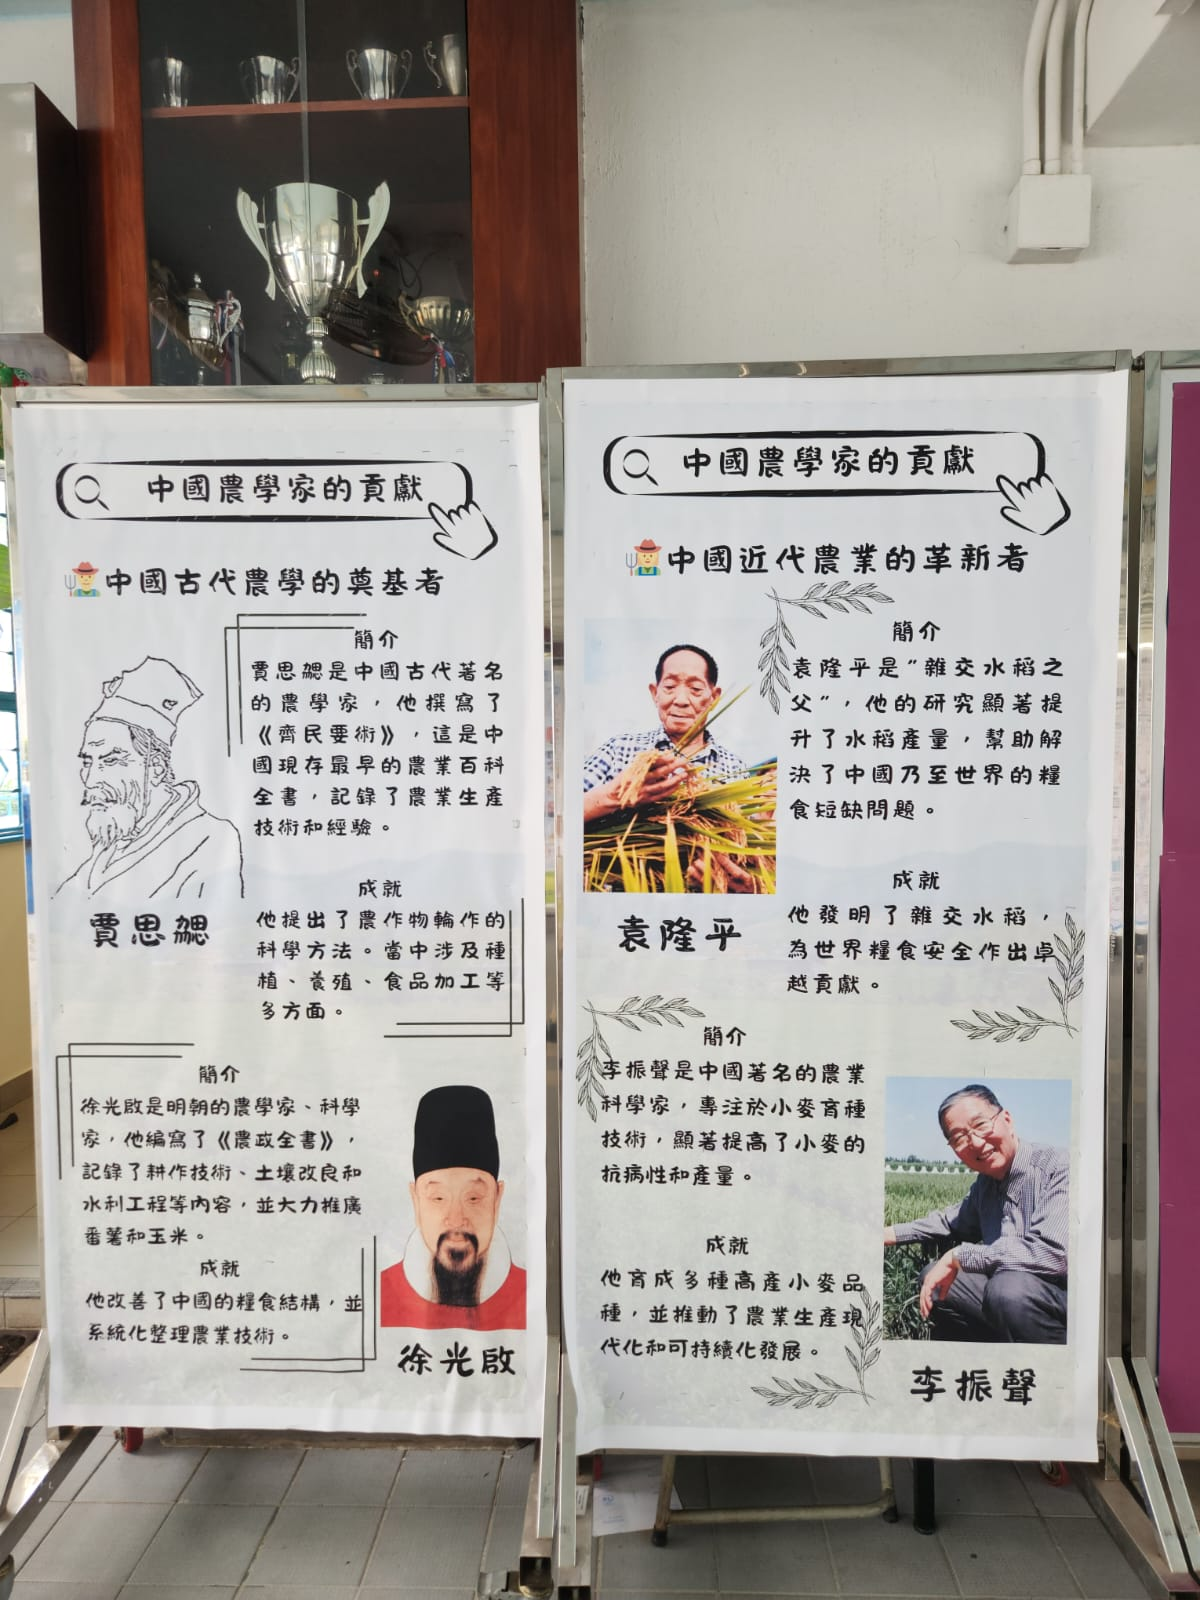 中國農學家的貢獻
中國古代農學的奠基者
簡介
賈思勰是中國古代著名
的農學家，他撰寫了
《齊民要術》，這是中
國現存最早的農業百科
全書，記錄了農業生產
技術和經驗。
成就
他提出了農作物輪作的
科學方法。當中涉及種
植、養殖、食品加工等
多方面。
賈思勰
簡介
徐光啟是明朝的農學家、科學
家，他編寫了《農政全書》，
記錄了耕作技術、土壤改良和
水利工程等內容，並大力推廣
番薯和玉米。
成就
他改善了中國的糧食結構，並
系統化整理農業技術。
徐光啟
中國農學家的貢獻
中國近代農業的革新者
簡介
袁隆平是"雜交水稻之
父"，他的研究顯著提
升了水稻產量，幫助解
決了中國乃至世界的糧
食短缺問題。
成就
他發明了雜交水稻，
為世界糧食安全作出卓
越貢獻。
袁隆平
簡介
李振聲是中國著名的農業
科學家，專注於小麥育種
技術，顯著提高了小麥的
抗病性和產量。
成就
他育成多種高產小麥品
種，並推動了農業生產現
代化和可持續化發展。
李振聲